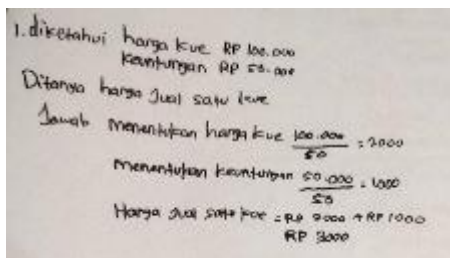 1. diketahui harga kue RP 100.000
keuntungan RP 50.000
Ditanya harga jual satu kue
Jawab menentukan harga kue 100.000 / 50 = 2000
menentukan keuntungan 50.000 / 50 = 1000
Harga jual satu kue = RP 2000 + RP 1000
RP 3000